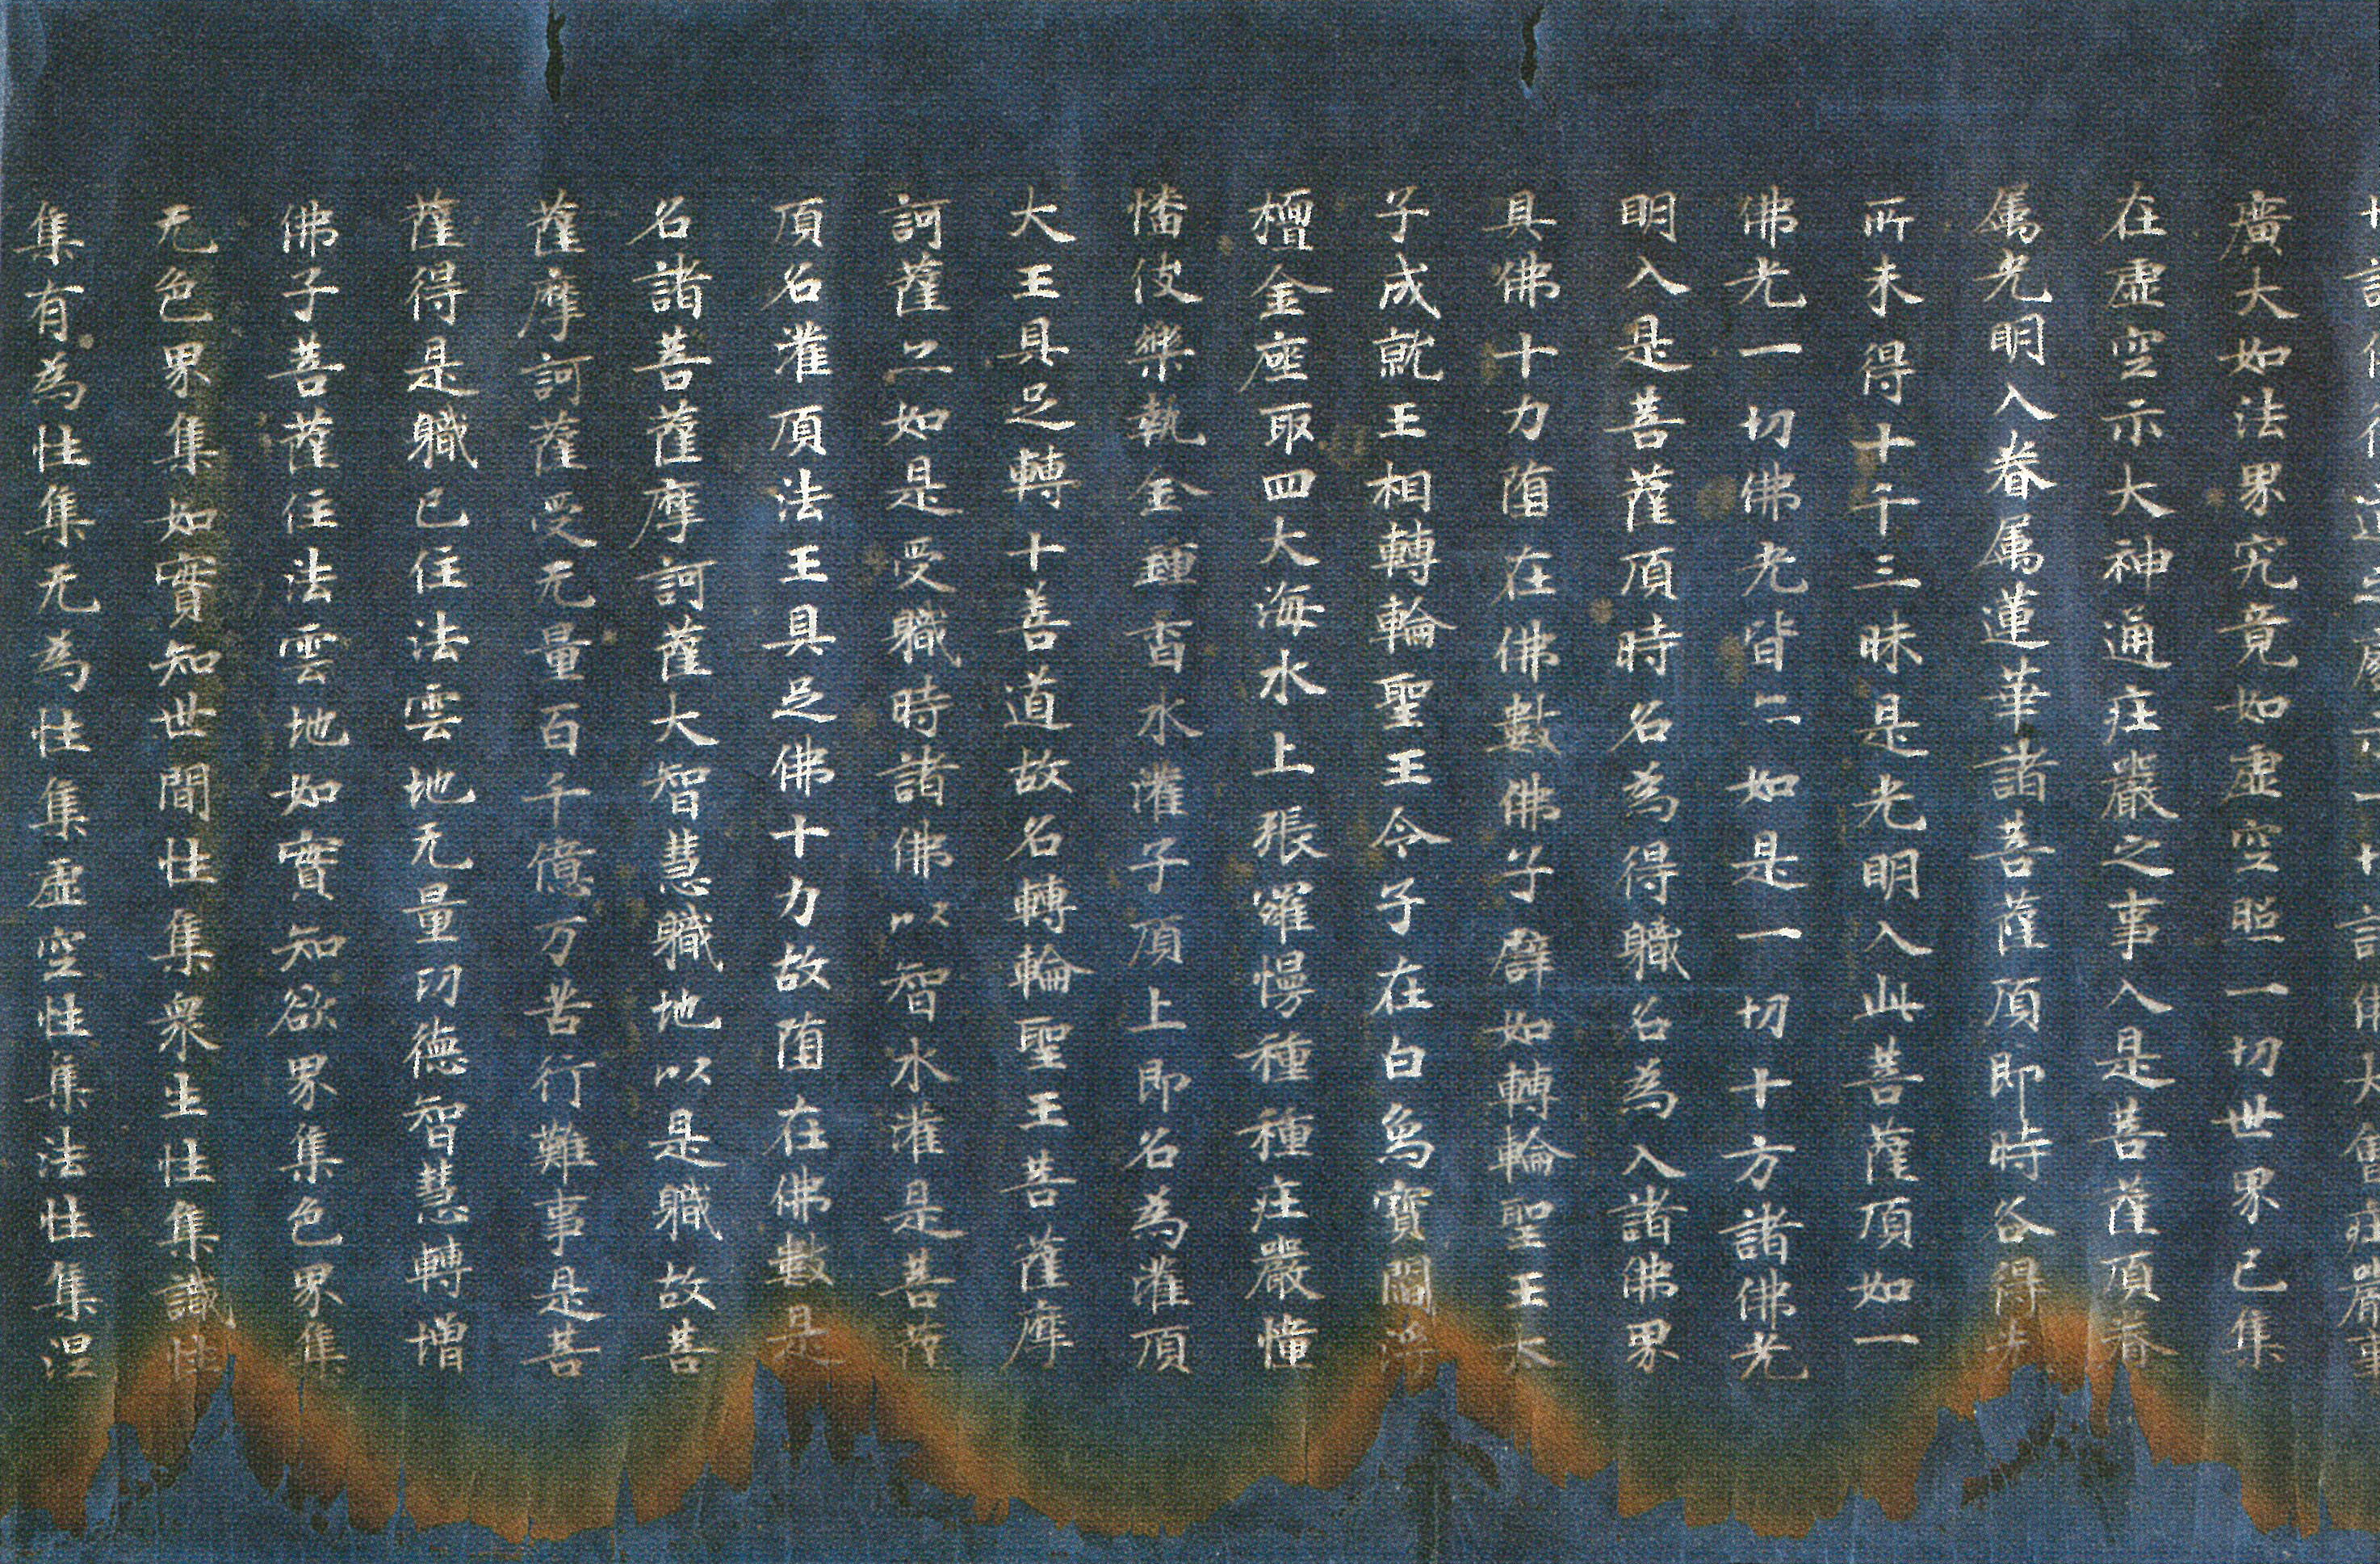 廣大如法界究竟如虛空照一切世界已集
在虛空示大神通庄嚴之事入是菩薩頂眷
属光明入眷属蓮華諸菩薩頂即時各得未
所未得十千三昧是光明入此菩薩頂如一
佛光一切佛光皆亦如是一切十方諸佛光
明入是菩薩頂時名為得職名為入諸佛界
具佛十力墮在佛數佛子譬如轉輪聖王太
子成就王相轉輪聖王令子在白象寶閻浮
檀金座取四大海水上張羅幔種種庄嚴幢
幡伎樂執金鍾香水灌子頂上即名為灌頂
大王具足轉十善道故名轉輪聖王菩薩摩
訶薩亦如是受職時諸佛以智水灌是菩薩
頂名灌頂法王具足佛十力故墮在佛數是
名諸菩薩摩訶薩大智慧職地以是職故菩
薩摩訶薩受无量百千億万苦行難事是菩
薩得是職已住法雲地无量功德智慧轉增
佛子菩薩住法雲地如實知欲界集色界集
无色界集如實知世間性集衆生性集識性
集有為性集无為性集虛空性集法性集涅